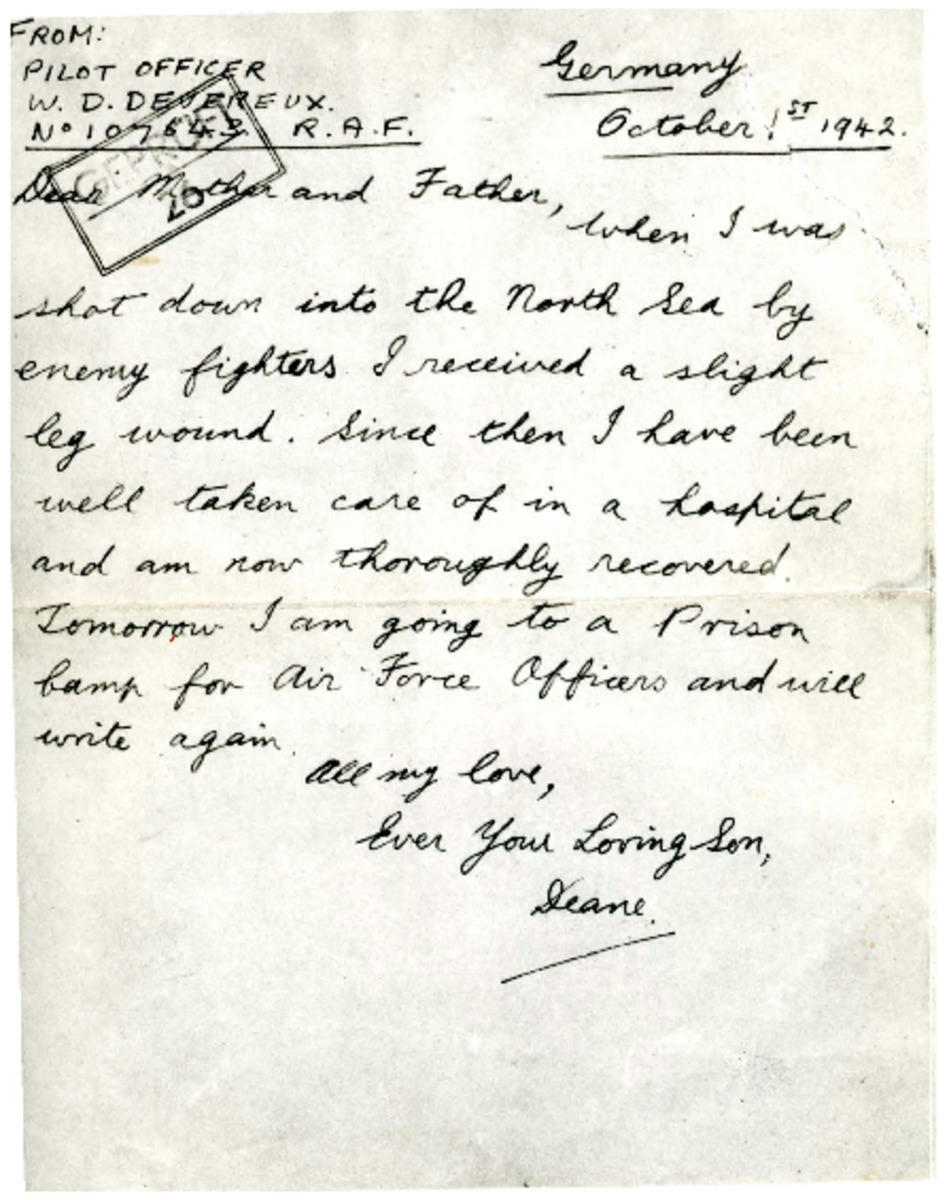 FROM:
PILOT OFFICER
W. D. DEVEREUX.
Nº 107643 R.A.F.
Germany
October 1ST 1942.
GEPRÜFT
Dear Mother and Father,
when I was
shot down into the North Sea by
enemy fighters I received a slight
leg wound. Since then I have been
well taken care of in a hospital
and am now thoroughly recovered.
Tomorrow I am going to a Prison
Camp for Air Force Officers and will
write again.
All my love,
Ever Your Loving Son,
Deane.